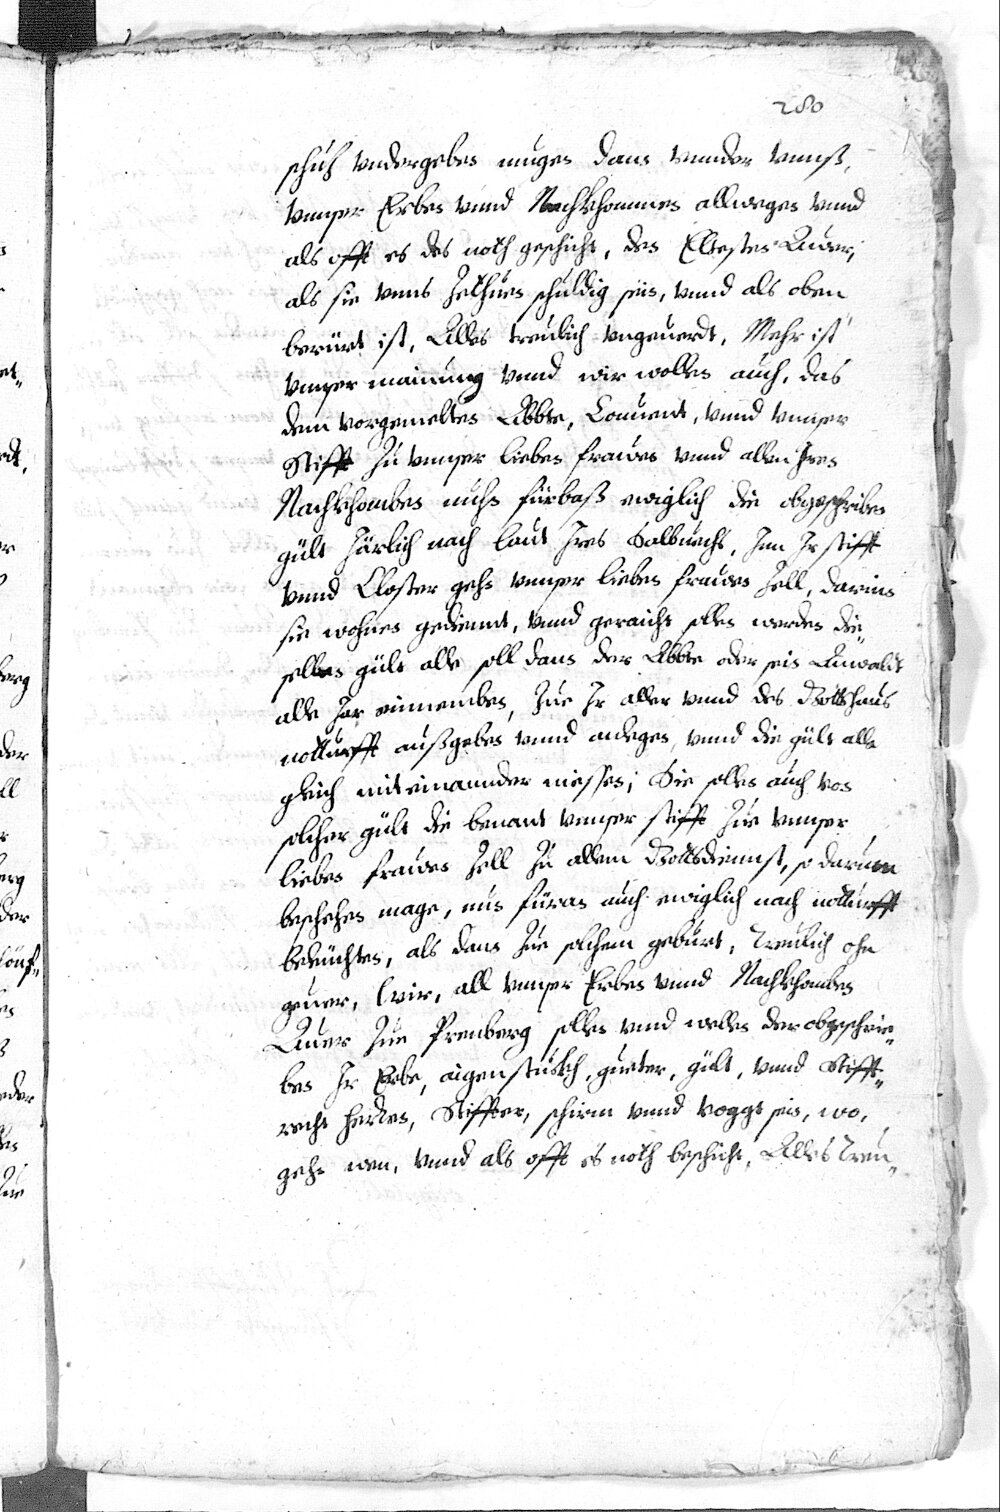 280
schuz vndergeben mugen dann vnnder vnnß,
vnnser Erben vnnd Nachkhommen allwegen vnnd
als offt es des noth geschicht, den Elltesten Auer,
als sie vnns zethuen schuldig sein, vnnd als oben
berürt ist, Alles treulich vngeuerdt, Mehr ist
vnnser mainung vnnd wir wollen auch, das
dem vorgemelten Abbte, Conuent, vnnd vnnser
Stifft zu vnnser lieben frauen vnnd allen Iren
Nachkhomben nuhn fürbaß ewiglich die obgeschriben
gült Järlich nach laut Ires Salbuechs, Inn Ir stifft
vnnd Closter gehn vnnser lieben frauen Zell, darinn
sie wohnen gediennt, vnnd geraicht sollen werden die„
selben gült alle soll dann der Abbte oder sein Anwaldt
alle Jar einnemben, Zue Ir aller vnnd des Gottshaus
notturfft außgeben vnnd anlegen, vnnd die gült alle
gleich miteinannder niessen; Sie sollen auch von
solcher gült die benant vnnser stifft Zue vnnser
lieben frauen Zell Zu allem Gottsdiennst, so darinn
beschehen mage, nun füran auch ewiglich nach notturfft
beleüchten, als dann Zue solchem gebürt, Treülich ohn
geuer, Wir, all vnnser Erben vnnd Nachkhomben
Auer Zue Prenberg sollen vnnd wellen der obgeschrie„
ben Ir Erbe, aigen stuckh, gueter, gült, vnnd Stifft„
recht herren, Stiffter, schirm vnnd voggt sein, wo,
gehn wen, vnnd als offt es noth beschicht, Alles Treu„